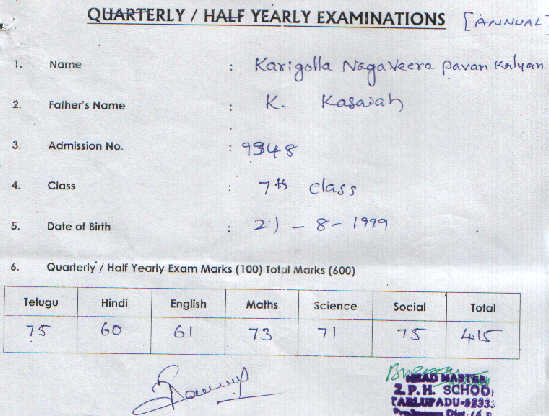 QUARTERLY / HALF YEARLY EXAMINATIONS [ANNUAL]
1. Name : Karigolla Nagaveera pavan kalyan
2. Father's Name : K. Kasaiah
3. Admission No. : 9348
4. Class : 7th class
5. Date of Birth : 21 - 8 - 1999
6. Quarterly / Half Yearly Exam Marks (100) Total Marks (600)
Telugu Hindi English Maths Science Social Total
75 60 61 73 71 75 415
HEAD MASTER
Z.P.H. SCHOOL
TARLUPADU-52333